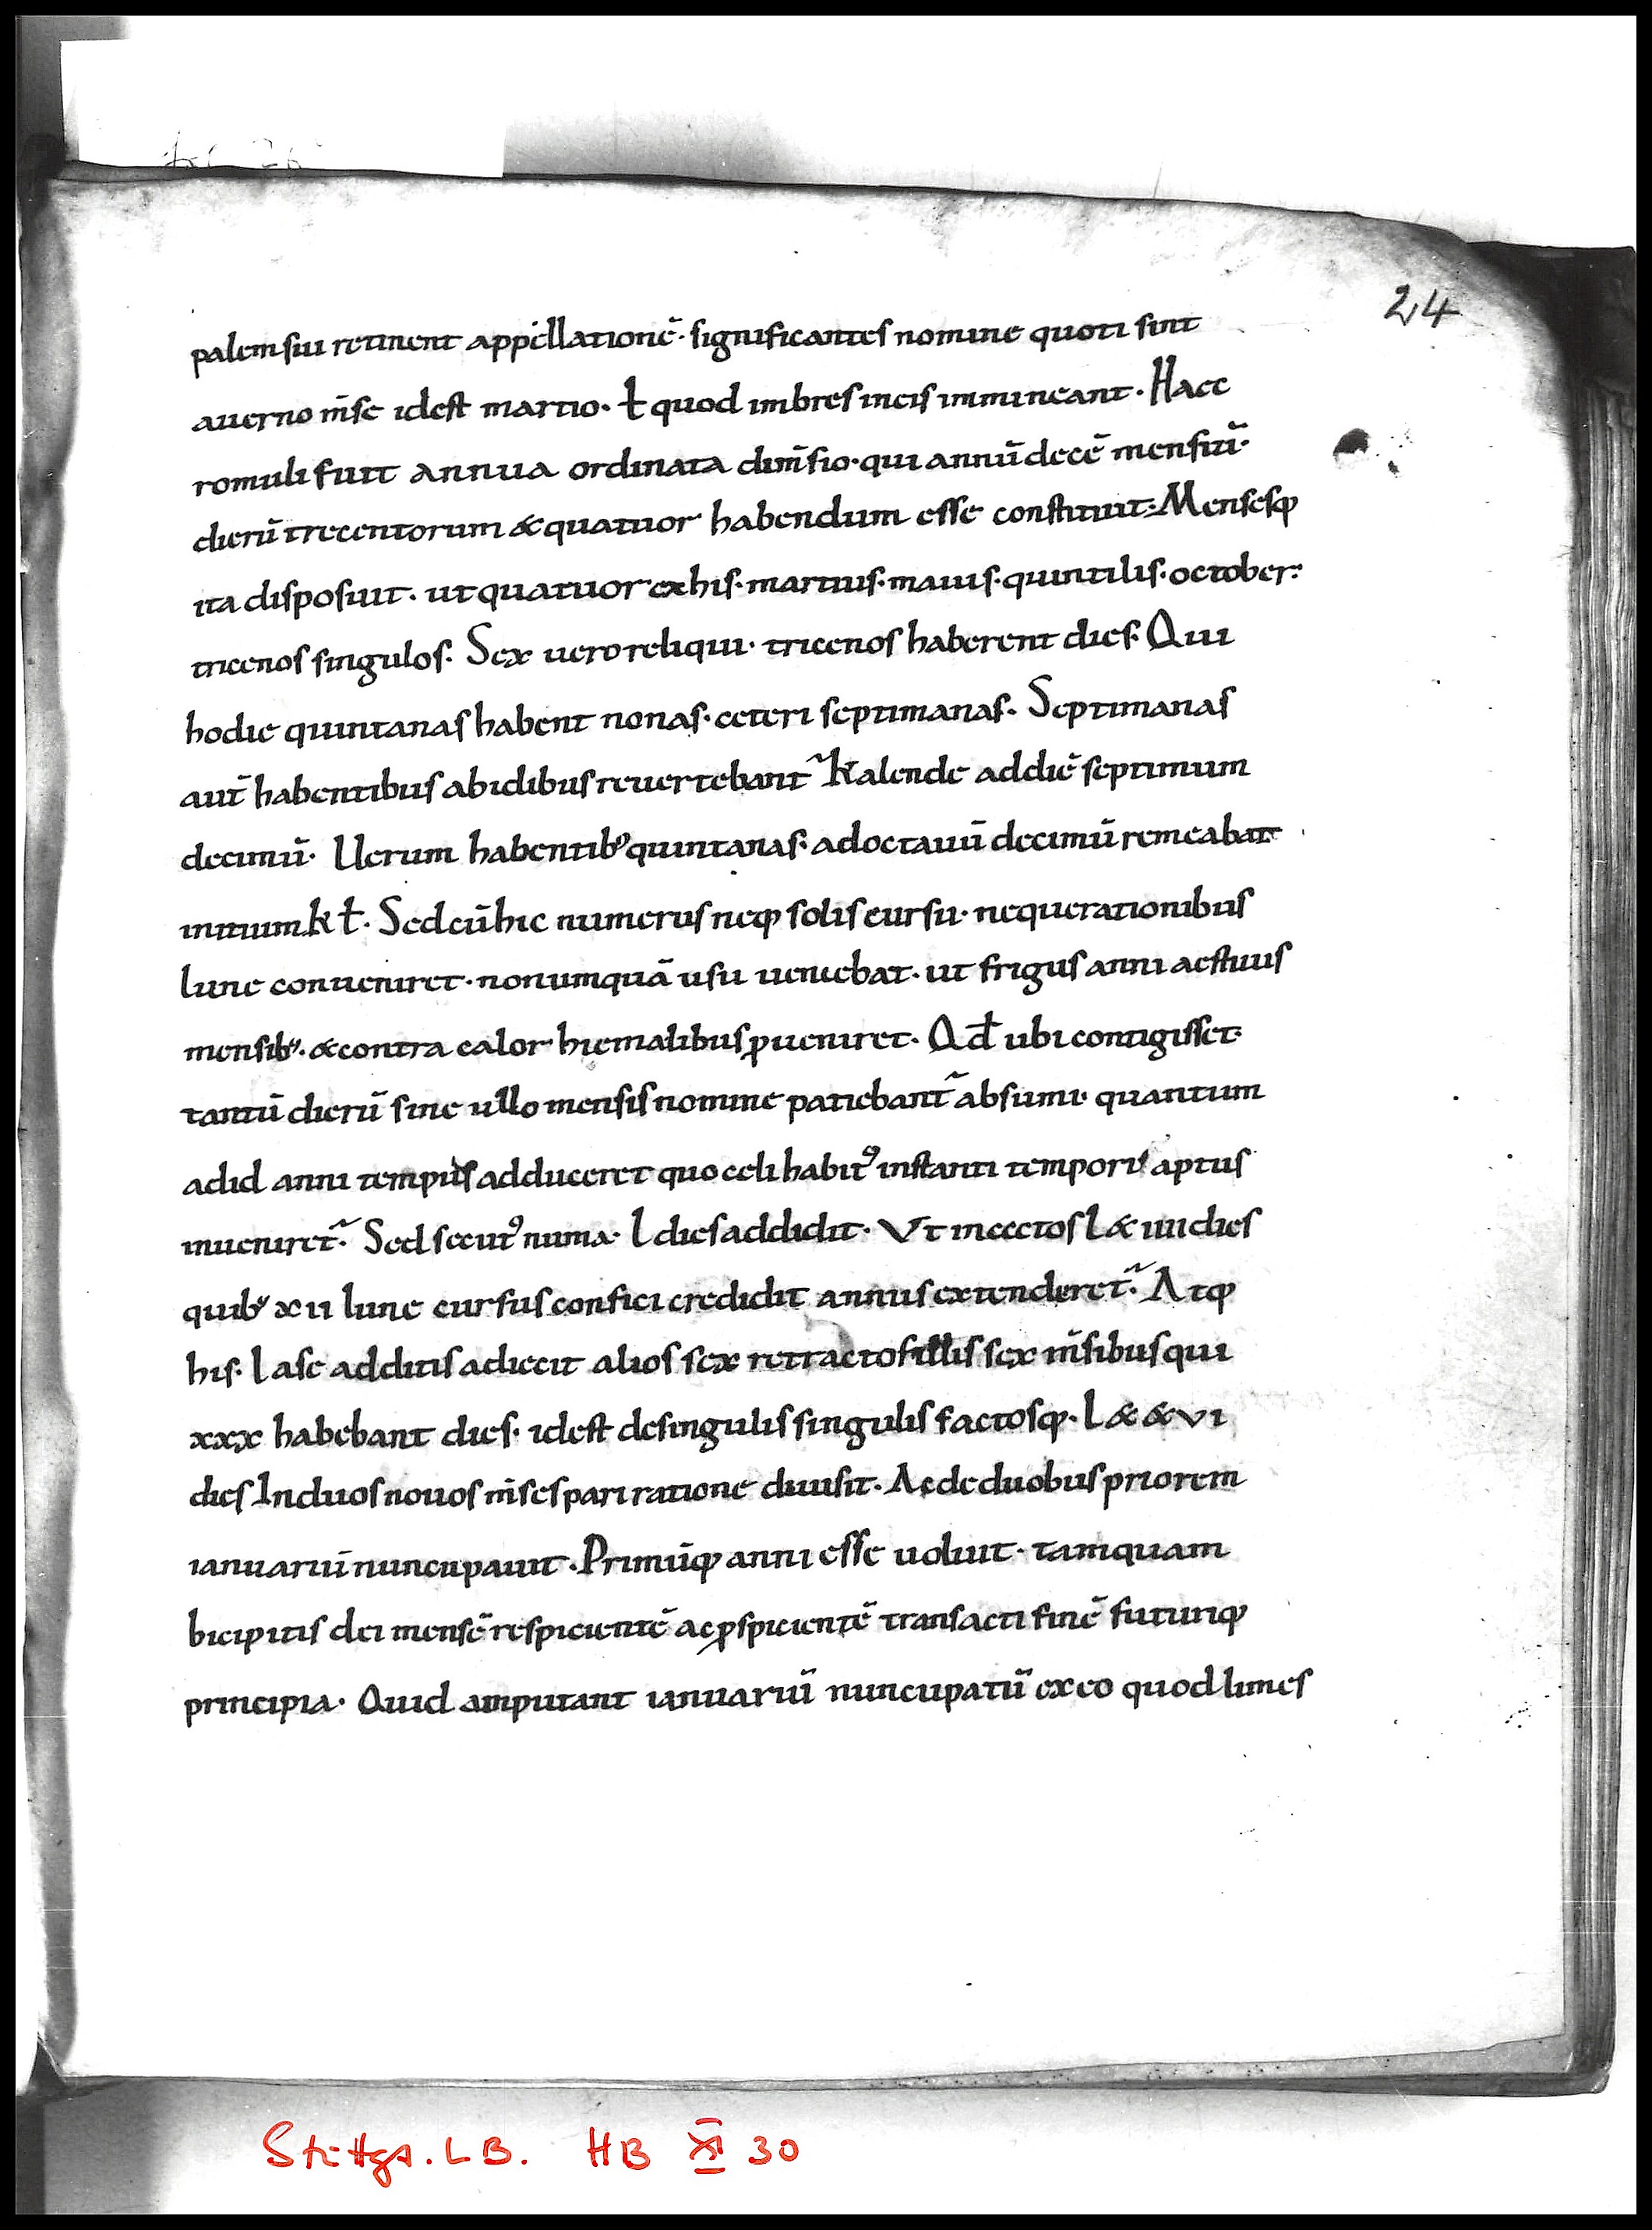 24
palem sui retinent appellationē· significantes nomine quoti sint
a uerno m̄se id est martio· ł quod imbres in eis immineant· Haec
romuli fuit annua ordinata dim̄sio· qui annū decē mensiū·
dierū trecentorum & quatuor habendum esse constituit· Mensesq;
ita disposuit· ut quatuor ex his· martius· maius· quintilis· october·
tricenos singulos· Sex uero reliqui· tricenos haberent dies· Qui
hodie quintanas habent nonas· ceteri septimanas· Septimanas
aut̄ habentibus ab idibus reuertebant᷑ kalende ad diē septimum
decimū· Uerum habentib; quintanas· ad octauū decimū remeabat
initium kł· Sed cū hic numerus neq; solis cursu· neque rationibus
lune conueniret· nonumquā usu ueniebat· ut frigus anni aestiuis
mensib;· & contra calor hiemalibus ꝓueniret· Qđ ubi contigisset·
tantū dierū sine ullo mensis nomine patiebant᷑ absumi· quantum
ad id anni tempus adduceret quo celi habitꝰ instanti tempori aptus
inueniret᷑· Sed secutꝰ numa· l dies addidit· Vt in ccctos l & iiii dies
quib; xii lune cursus confici credidit annus extenderet᷑· Atq;
his· l a se additis adiecit alios sex retractos illis sex m̄sibus qui
xxx habebant dies· id est de singulis singulis factosq;· l & & vi
dies In duos nouos m̄ses pari ratione diuisit· Ac de duobus priorem
ianuariū nuncupauit· Primūq; anni esse uoluit· tamquam
bicipitis dei mensē respicientē ac ꝓspicientē transacti finē futuriq;
principia· Quid amputant ianuariū nuncupatū ex eo quod limes
Stuttgt. LB. HB XI 30